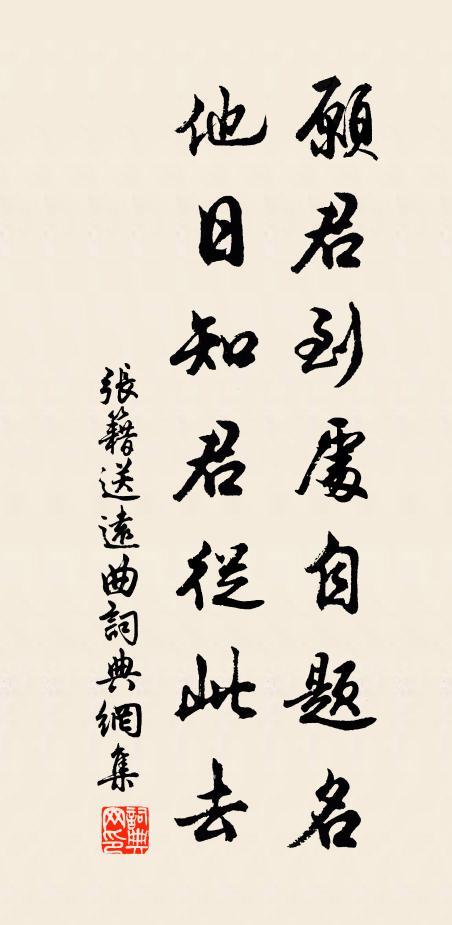 願君到處自題名
他日知君從此去
張籍送遠曲詞典網集
詞典網印